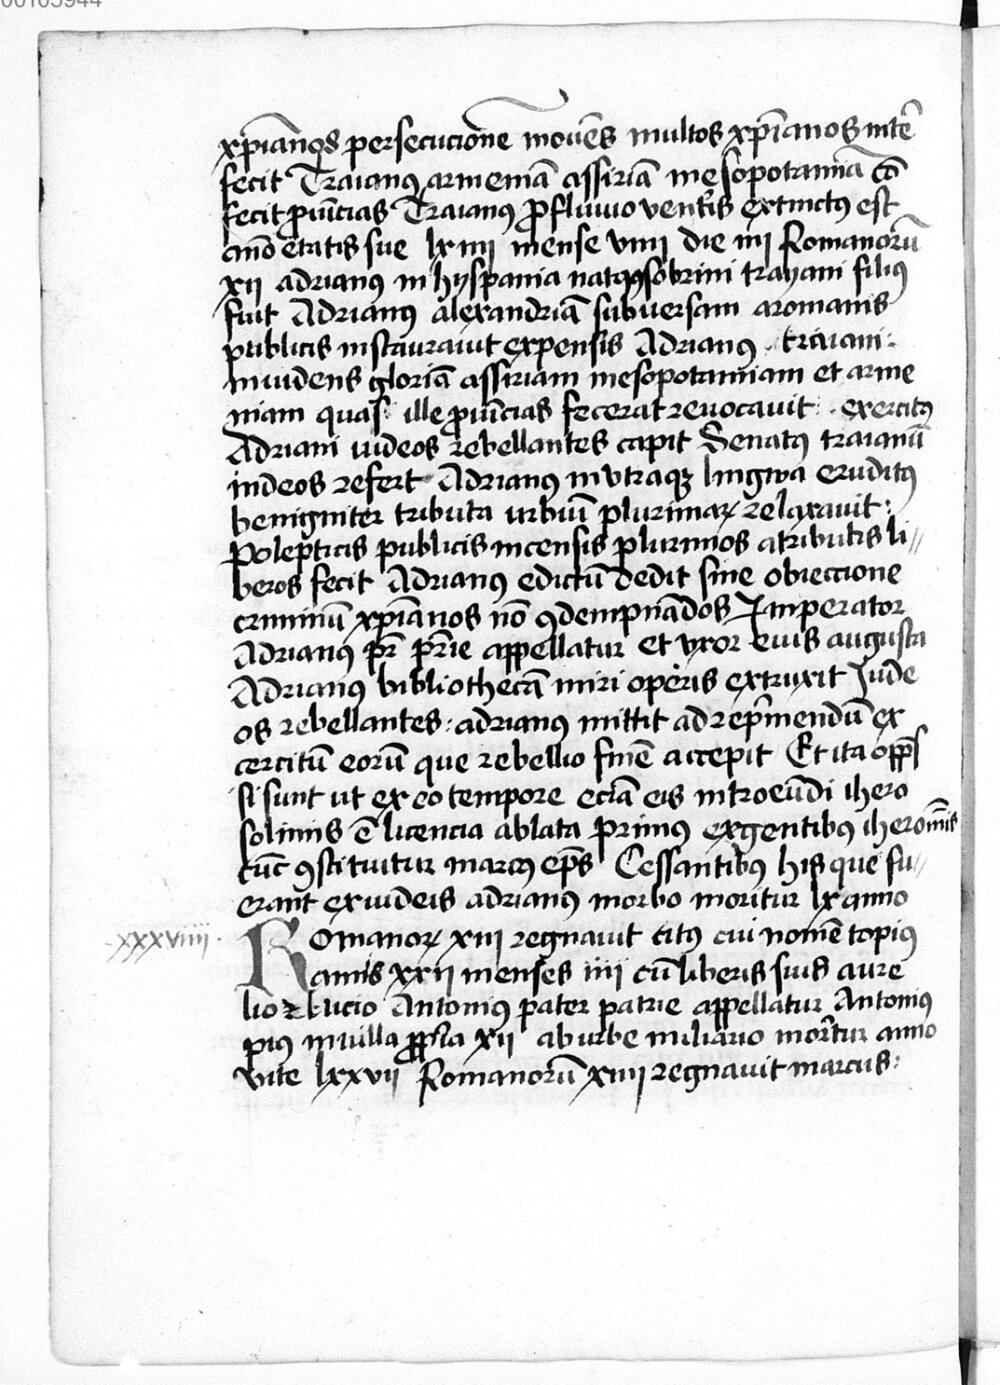 00105944
xp̄ianos persecucione mouēs multos xp̄ianos intē
fecit Traianꝰ armeniā assiriā mesopotamiā cō
fecit ꝓuincias Traianꝰ ꝓfluuio ventris extinctꝰ est
āno etatis sue lxiiii mense viiii die iiii Romanorū
xii adrianꝰ in hyspania natꝰ ꝯsobrini trayani filiꝰ
fuit Adrianꝰ alexandriā subuersam aromanis
publicis instaurauit expensis Adrianꝰ traiani:
inuidens gloriā assiriam mesopotamiam et arme
niam quas ille ꝓuīcias fecerat reuocauit: exercitꝰ
Adriani iudeos rebellantes capit Senatꝰ traianū
indeos refert Adrianꝰ in vtraqꝫ lingwa eruditꝰ
benigniter tributa urbiū plurimaꝝ relaxauit:
Polepticis publicis incensis plurimos atributis li//
beros fecit Adrianꝰ edictū dedit sine obieccione
criminū xp̄ianos nō ꝯdempnādos Imperator
Adrianꝰ pr̄ pr̄ie appellatur et vxor eius augusta
Adrianꝰ bibliothecā miri operis extruxit Iude
os rebellantes: adrianꝰ mittit ad rep̄mendū ex
cercitū eorū que rebellio finē accepit Et ita opp̄s
si sunt ut ex eo tempore eciā eis introeūdi ihero
solimis ē licencia ablata primꝰ exgentibꝰ iherom̄is
tūc ꝯstituitur marcꝰ ep̄s Cessantibꝰ his que fu//
erant exiudeis adrianꝰ morbo moritur lx anno
xxxviiii Romanoꝝ xiii regnauit titꝰ cui nomē topiꝰ
annis xxii menses iiii cū liberis suis aure
lio ⁊ lucio Antoniꝰ pater patrie appellatur Antoniꝰ
piꝰ in villa ꝓp̄ia xii ab urbe miliario moritur anno
vite lxxvii Romanorū xiiii regnauit marcus: